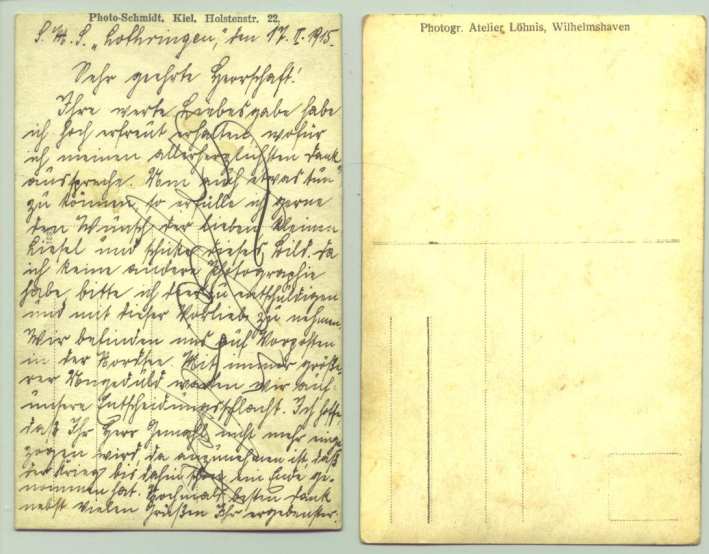 Photo-Schmidt, Kiel, Holstenstr. 22.
S. M. S. „Lothringen,“ den 17. II. 1915.
Sehr geehrte Herrschaft!
Ihre werte Liebesgabe habe
ich hoch erfreut erhalten, wofür
ich meinen allerherzlichsten Dank
ausspreche. Um auch etwas tun
zu können so erfülle ich gerne
den Wunsch der lieben kleinen
Liesel und schicke dieses Bild. da
ich keine andere Photographie
habe, bitte ich dies zu entschuldigen
und mit dieser Vorliebe zu nehmen
Wir befinden uns auf Vorposten
in der Nordsee. Mit immer größe-
rer Ungeduld warten wir auf
unsere Entscheidungsschlacht. Ich hoffe,
daß Ihr Herr Gemahl nicht mehr einge
zogen wird, da anzunehmen ist, daß
der Krieg bis dahin schon ein Ende ge-
nommen hat. Nochmals besten Dank
nebst vielen Grüßen Ihr ergebenster.
Photogr. Atelier Löhnis, Wilhelmshaven